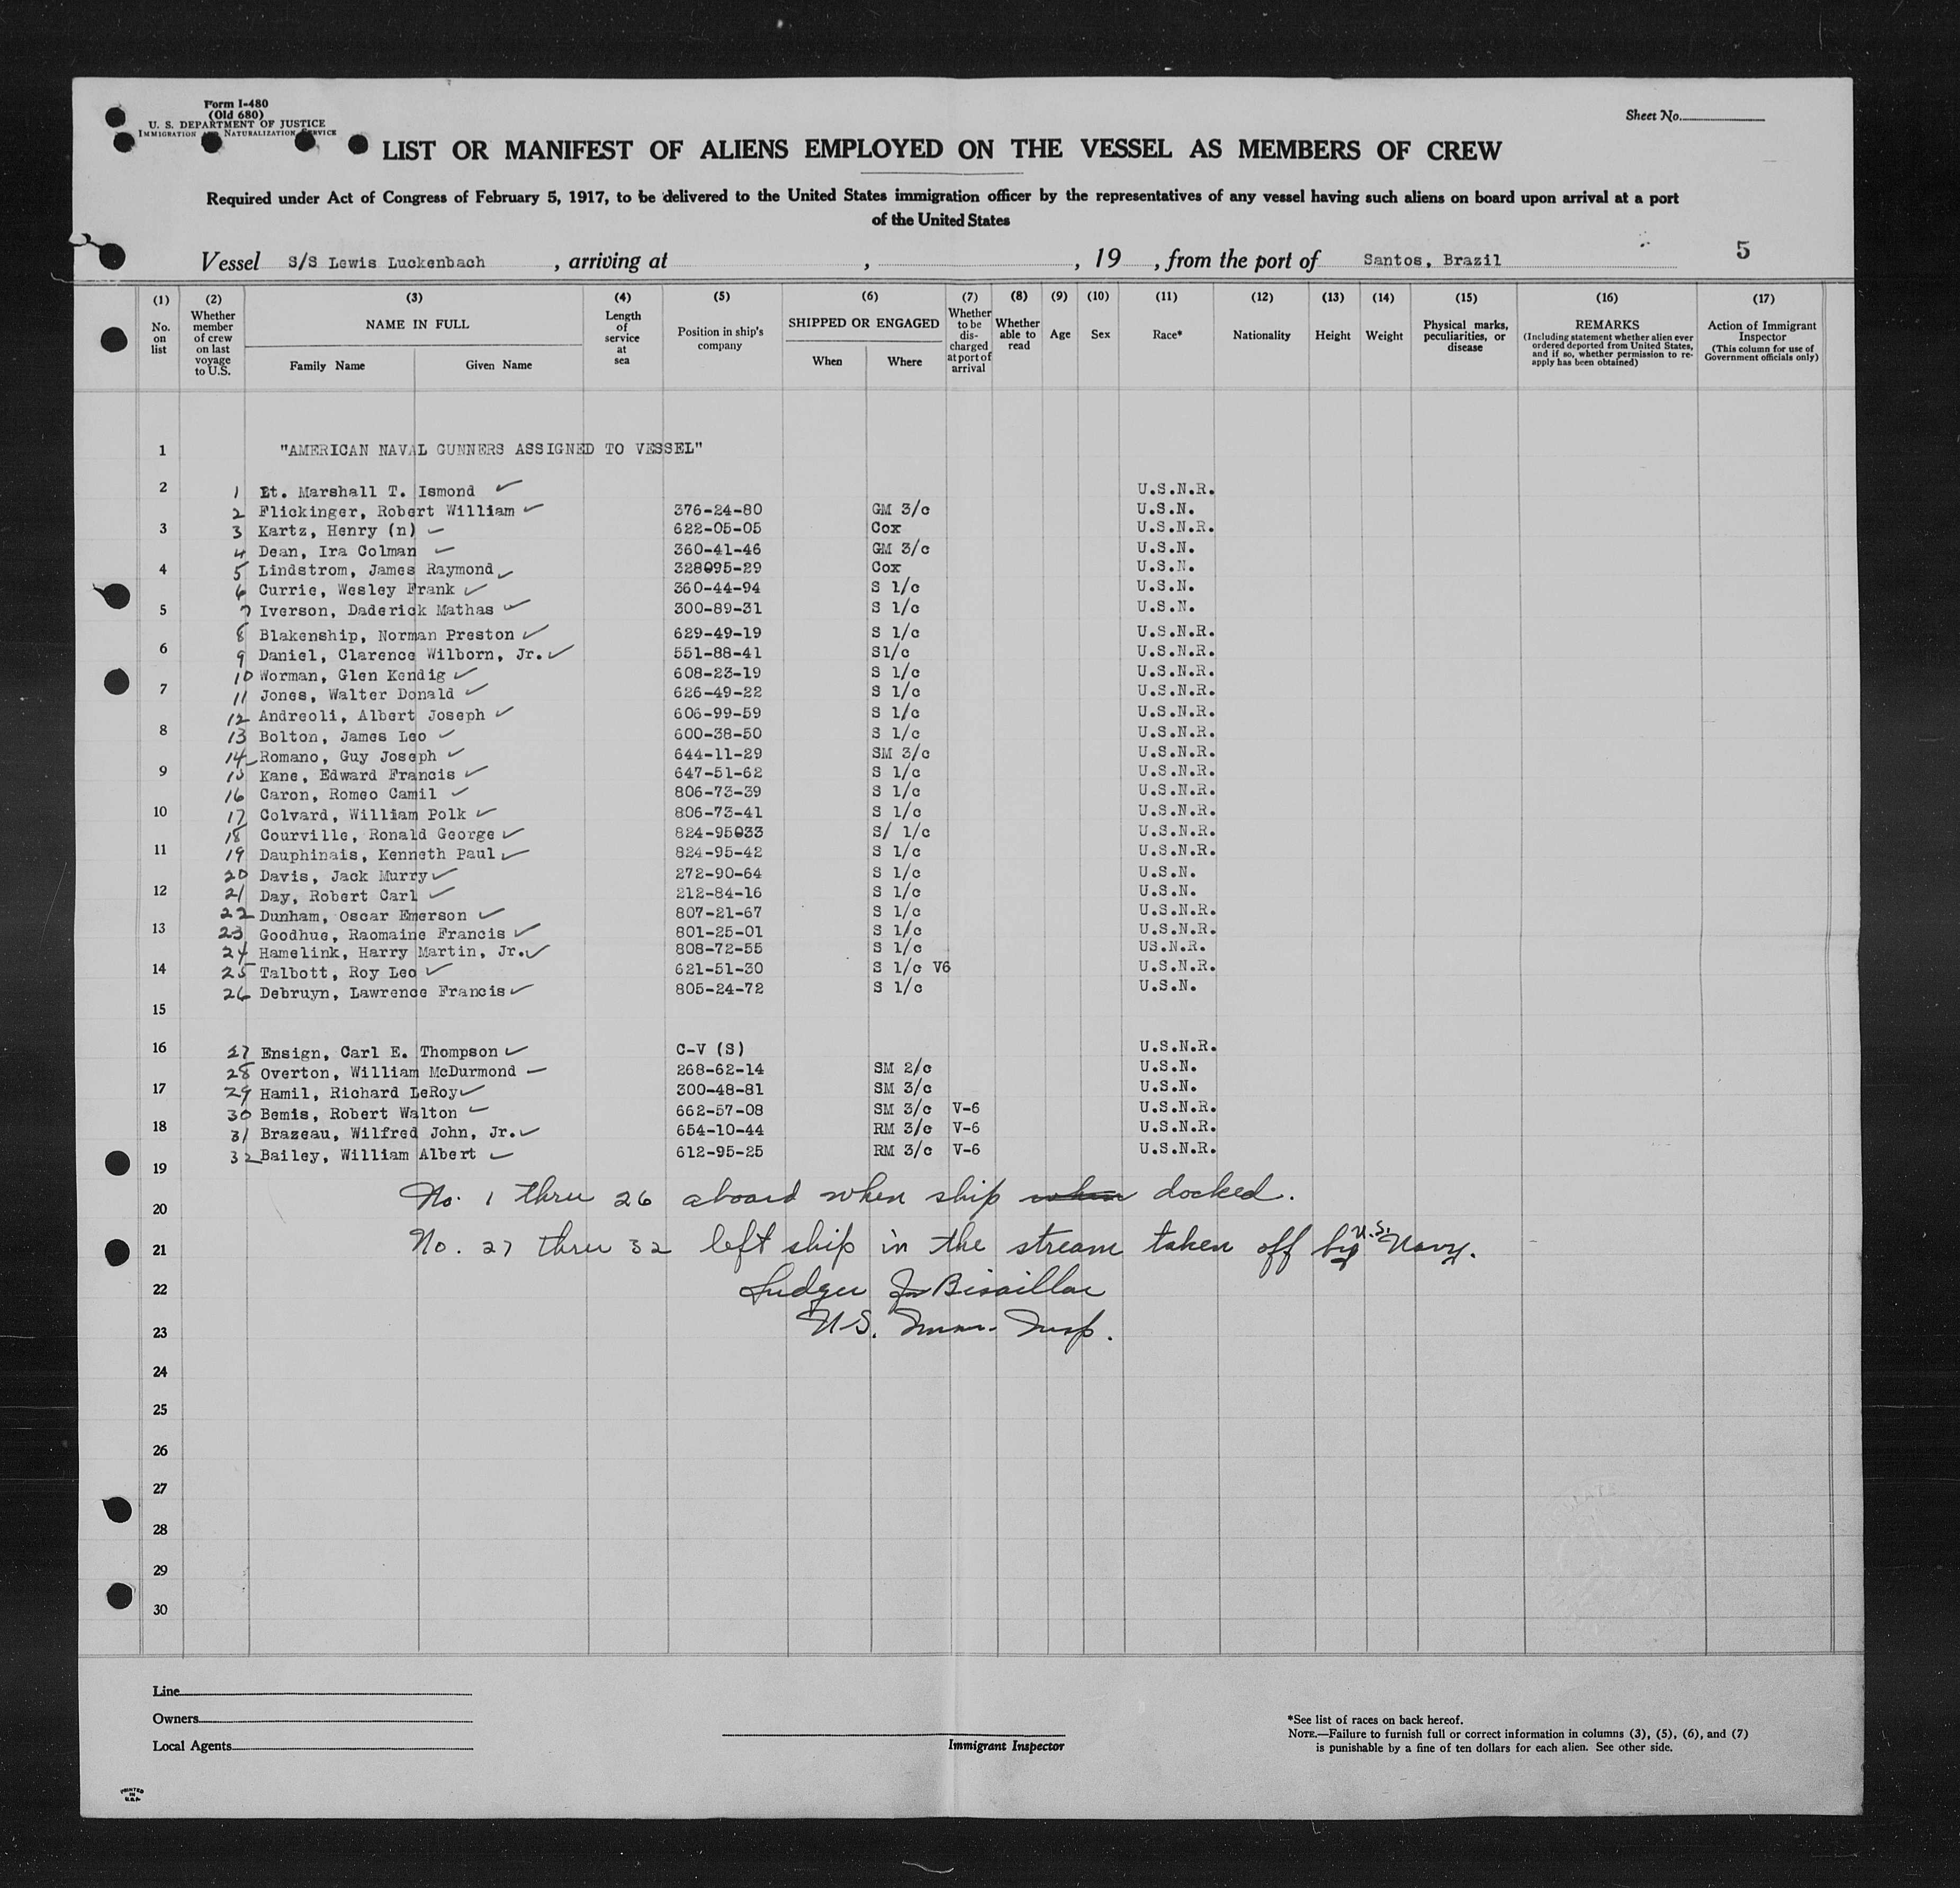 Form I-480
(Old 680)
U. S. DEPARTMENT OF JUSTICE
IMMIGRATION AND NATURALIZATION SERVICE
Sheet No.
LIST OR MANIFEST OF ALIENS EMPLOYED ON THE VESSEL AS MEMBERS OF CREW
Required under Act of Congress of February 5, 1917, to be delivered to the United States immigration officer by the representatives of any vessel having such aliens on board upon arrival at a port
of the United States
Vessel S/S Lewis Luckenbach , arriving at , , 19 , from the port of Santos, Brazil 5
(1) No. on list
(2) Whether member of crew on last voyage to U.S.
(3) NAME IN FULL
Family Name Given Name
(4) Length of service at sea
(5) Position in ship's company
(6) SHIPPED OR ENGAGED
When Where
(7) Whether to be discharged at port of arrival
(8) Whether able to read
(9) Age
(10) Sex
(11) Race*
(12) Nationality
(13) Height
(14) Weight
(15) Physical marks, peculiarities, or disease
(16) REMARKS
(Including statement whether alien ever ordered deported from United States, and if so, whether permission to re-apply has been obtained)
(17) Action of Immigrant Inspector
(This column for use of Government officials only)
1 "AMERICAN NAVAL GUNNERS ASSIGNED TO VESSEL"
2 1 Lt. Marshall T. Ismond ✓ U.S.N.R.
2 Flickinger, Robert William ✓ 376-24-80 GM 3/c U.S.N.
3 3 Kartz, Henry (n) ✓ 622-05-05 Cox U.S.N.R.
4 Dean, Ira Colman ✓ 360-41-46 GM 3/c U.S.N.
4 5 Lindstrom, James Raymond ✓ 328095-29 Cox U.S.N.
6 Currie, Wesley Frank ✓ 360-44-94 S 1/c U.S.N.
5 7 Iverson, Daderick Mathas ✓ 300-89-31 S 1/c U.S.N.
8 Blakenship, Norman Preston ✓ 629-49-19 S 1/c U.S.N.R.
6 9 Daniel, Clarence Wilborn, Jr. ✓ 551-88-41 S1/c U.S.N.R.
10 Worman, Glen Kendig ✓ 608-23-19 S 1/c U.S.N.R.
7 11 Jones, Walter Donald ✓ 626-49-22 S 1/c U.S.N.R.
12 Andreoli, Albert Joseph ✓ 606-99-59 S 1/c U.S.N.R.
8 13 Bolton, James Leo ✓ 600-38-50 S 1/c U.S.N.R.
14 Romano, Guy Joseph ✓ 644-11-29 SM 3/c U.S.N.R.
9 15 Kane, Edward Francis ✓ 647-51-62 S 1/c U.S.N.R.
16 Caron, Romeo Camil ✓ 806-73-39 S 1/c U.S.N.R.
10 17 Colvard, William Polk ✓ 806-73-41 S 1/c U.S.N.R.
18 Courville, Ronald George ✓ 824-95033 S/ 1/c U.S.N.R.
11 19 Dauphinais, Kenneth Paul ✓ 824-95-42 S 1/c U.S.N.R.
20 Davis, Jack Murry ✓ 272-90-64 S 1/c U.S.N.
12 21 Day, Robert Carl ✓ 212-84-16 S 1/c U.S.N.
22 Dunham, Oscar Emerson ✓ 807-21-67 S 1/c U.S.N.R.
13 23 Goodhue, Raomaine Francis ✓ 801-25-01 S 1/c U.S.N.R.
24 Hamelink, Harry Martin, Jr. ✓ 808-72-55 S 1/c US.N.R.
14 25 Talbott, Roy Leo ✓ 621-51-30 S 1/c V6 U.S.N.R.
26 Debruyn, Lawrence Francis ✓ 805-24-72 S 1/c U.S.N.
15
16 27 Ensign, Carl E. Thompson ✓ C-V (S) U.S.N.R.
28 Overton, William McDurmond ✓ 268-62-14 SM 2/c U.S.N.
17 29 Hamil, Richard LeRoy ✓ 300-48-81 SM 3/c U.S.N.
30 Bemis, Robert Walton ✓ 662-57-08 SM 3/c V-6 U.S.N.R.
18 31 Brazeau, Wilfred John, Jr. ✓ 654-10-44 RM 3/c V-6 U.S.N.R.
32 Bailey, William Albert ✓ 612-95-25 RM 3/c V-6 U.S.N.R.
19
20 No. 1 thru 26 aboard when ship when docked.
21 No. 27 thru 32 left ship in the stream taken off by U.S. Navy.
22 Ludger J. Bisaillon
23 U.S. Imm. Insp.
24
25
26
27
28
29
30
Line
Owners
Local Agents
Immigrant Inspector
*See list of races on back hereof.
NOTE.—Failure to furnish full or correct information in columns (3), (5), (6), and (7)
is punishable by a fine of ten dollars for each alien. See other side.
PRINTED
IN
U.S.A.